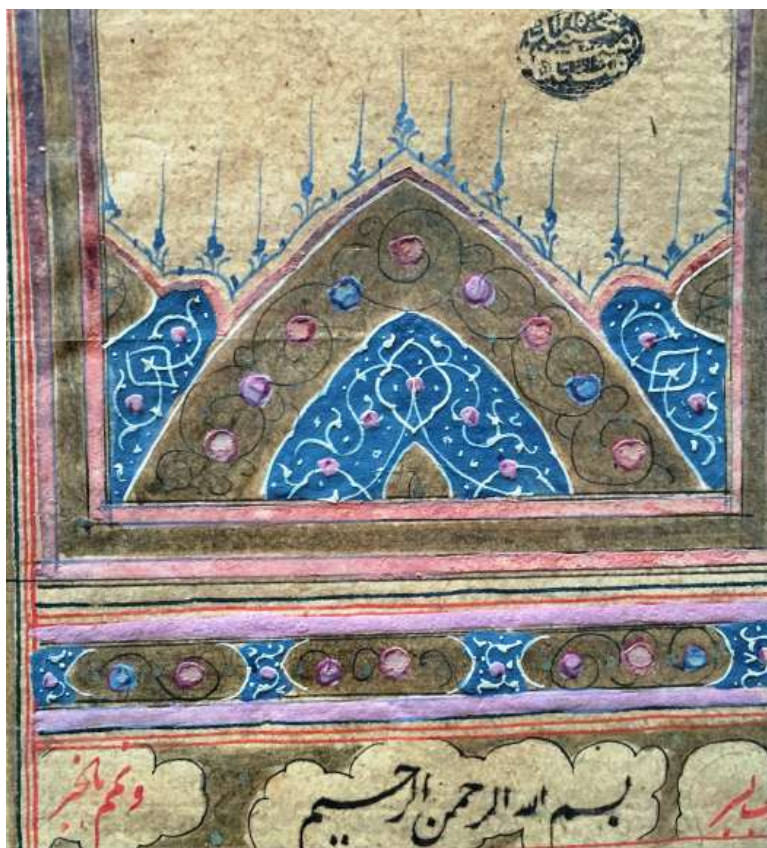 یسر بسم الله الرحمن الرحیم وتمم بالخیر